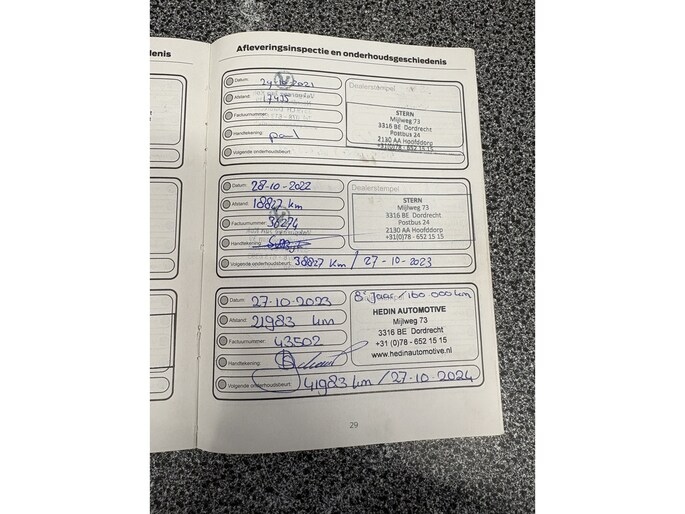 denis
Afleveringsinspectie en onderhoudsgeschiedenis
Datum:
Afstand: 17435
Factuurnummer:
Handtekening: paul
Volgende onderhoudsbeurt:
Dealerstempel
STERN
Mijlweg 73
3316 BE Dordrecht
Postbus 24
2130 AA Hoofddorp
+31(0)78 - 652 15 15
Datum: 28-10-2022
Afstand: 18827 km
Factuurnummer: 36274
Handtekening:
Volgende onderhoudsbeurt: 38827 km / 27-10-2023
Dealerstempel
STERN
Mijlweg 73
3316 BE Dordrecht
Postbus 24
2130 AA Hoofddorp
+31(0)78 - 652 15 15
Datum: 27-10-2023
Afstand: 21983 km
Factuurnummer: 43502
Handtekening:
Volgende onderhoudsbeurt: 41983 km / 27-10-2024
8e Jaars / 160 000 km
HEDIN AUTOMOTIVE
Mijlweg 73
3316 BE Dordrecht
+31 (0)78 - 652 15 15
www.hedinautomotive.nl
29